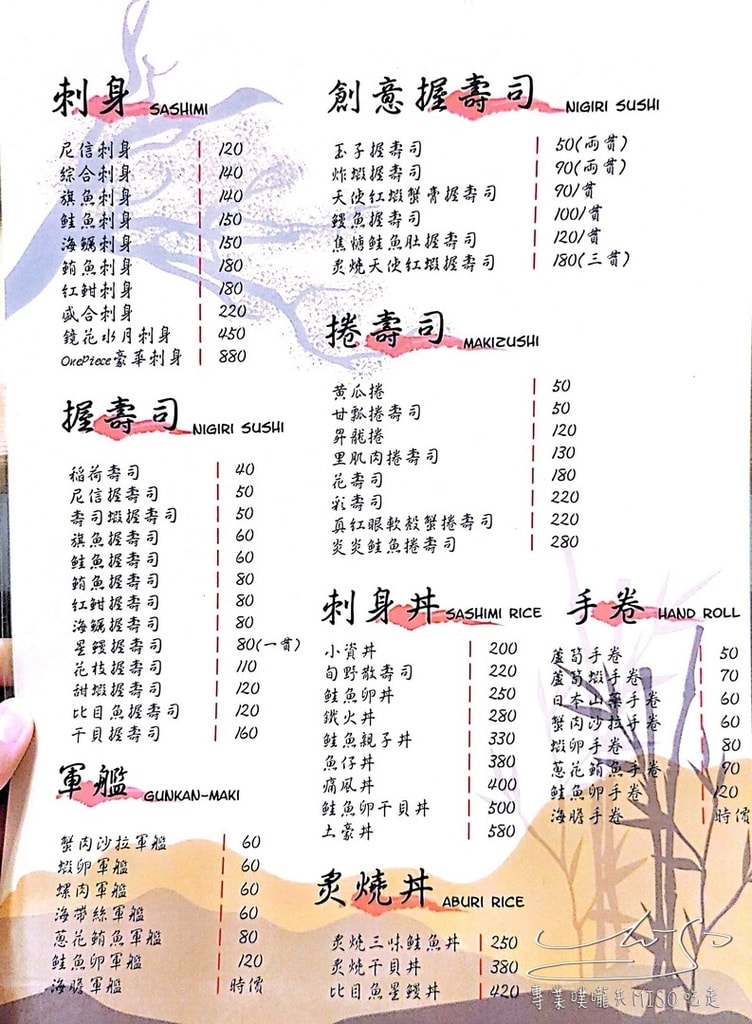 刺身 SASHIMI
尼信刺身 120
綜合刺身 140
旗魚刺身 140
鮭魚刺身 150
海鱺刺身 150
鮪魚刺身 180
紅魽刺身 180
盛合刺身 220
鏡花水月刺身 450
OnePiece豪華刺身 880
握壽司 NIGIRI SUSHI
稻荷壽司 40
尼信握壽司 50
壽司蝦握壽司 50
旗魚握壽司 60
鮭魚握壽司 60
鮪魚握壽司 80
紅魽握壽司 80
海鱺握壽司 80
星鰻握壽司 80(一貫)
花枝握壽司 110
甜蝦握壽司 120
比目魚握壽司 120
干貝握壽司 160
軍艦 GUNKAN-MAKI
蟹肉沙拉軍艦 60
蝦卵軍艦 60
螺肉軍艦 60
海帶絲軍艦 60
蔥花鮪魚軍艦 80
鮭魚卵軍艦 120
海膽軍艦 時價
創意握壽司 NIGIRI SUSHI
玉子握壽司 50(兩貫)
炸蝦握壽司 90(兩貫)
天使紅蝦蟹膏握壽司 90/貫
鰻魚握壽司 100/貫
焦糖鮭魚肚握壽司 120/貫
炙燒天使紅蝦握壽司 180(三貫)
捲壽司 MAKIZUSHI
黃瓜捲 50
甘瓢捲壽司 50
昇龍捲 120
里肌肉捲壽司 130
花壽司 180
彩壽司 220
真紅眼軟殼蟹捲壽司 220
炎炎鮭魚捲壽司 280
刺身丼 SASHIMI RICE
小資丼 200
旬野散壽司 220
鮭魚卵丼 250
鐵火丼 280
鮭魚親子丼 330
魚仔丼 380
痛風丼 400
鮭魚卵干貝丼 500
土豪丼 580
手卷 HAND ROLL
蘆筍手卷 50
蘆筍蝦手卷 70
日本山藥手卷 60
蟹肉沙拉手卷 60
蝦卵手卷 80
蔥花鮪魚手卷 90
鮭魚卵手卷 120
海膽手卷 時價
炙燒丼 ABURI RICE
炙燒三味鮭魚丼 250
炙燒干貝丼 380
比目魚星鰻丼 420
MISO
專業噗嚨共MISO吃走